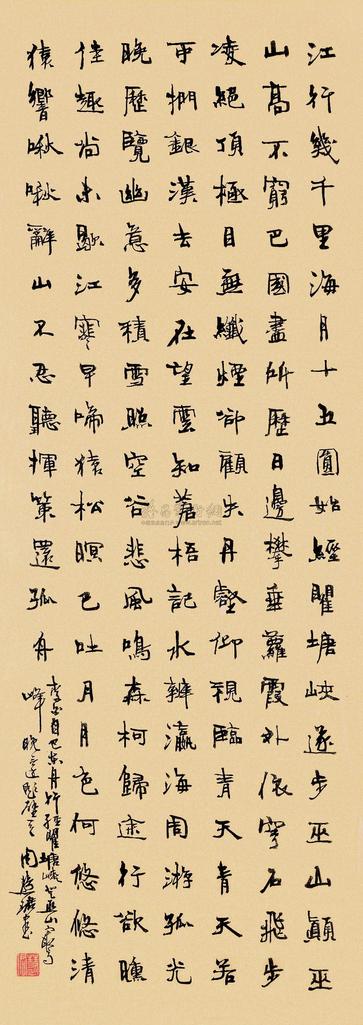 江行幾千里海月十五圓始經瞿塘峽遂步巫山顛巫
山高不窮巴國盡所歷日邊攀垂蘿霞外依穹石飛步
凌絕頂極目無纖煙卻顧失丹壑仰視臨青天青天若
可捫銀漢去安在望雲知蒼梧記水辨瀛海周游孤光
晚歷覽幽意多積雪照空谷悲風鳴森柯歸途行欲曛
佳趣尚未歇江寒早啼猿松暝已吐月月色何悠悠清
猿響啾啾辭山不忍聽揮策還孤舟
李白自巴東舟行經瞿塘峽登巫山最高
峰晚還題壁 周書